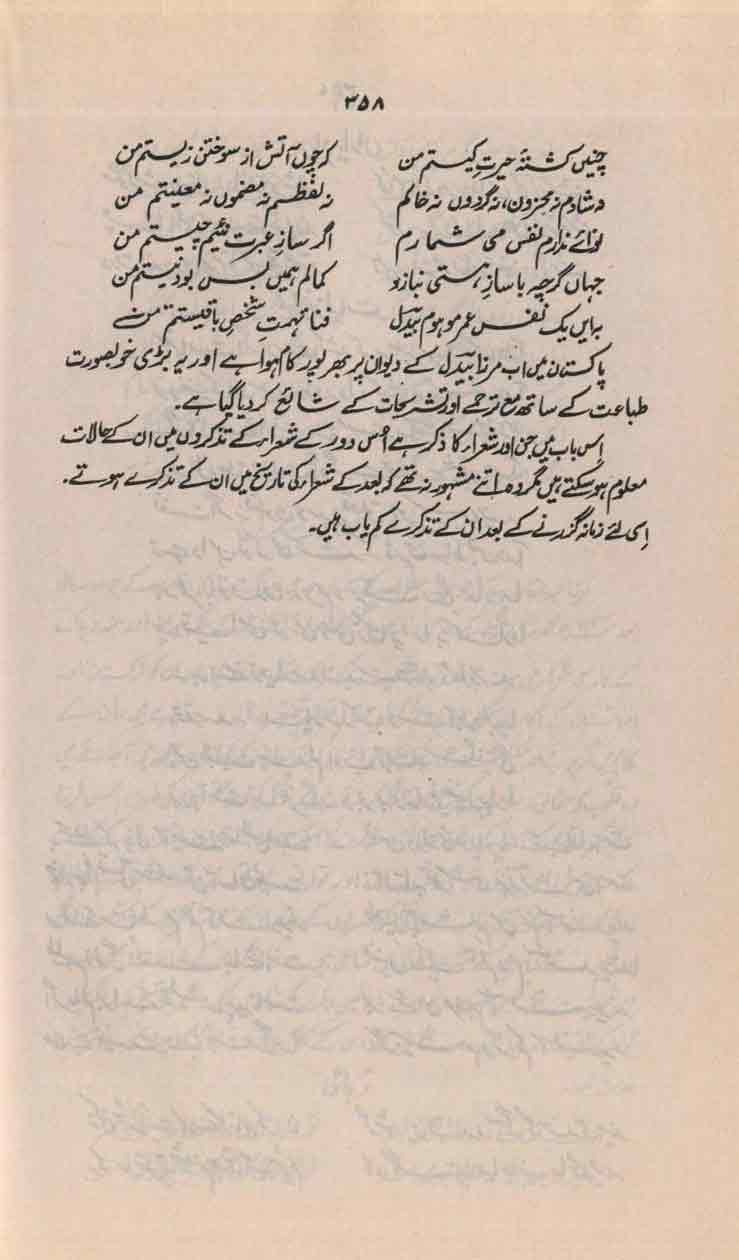 ۳۵۸
چنیں کشتۂ حیرتِ کیستم من کہ چوں آتش از سوختن زیستم من
نہ شادم نہ محزون، نہ گردوں نہ خاکم نہ لفظم نہ مضموں نہ معنیستم من
نوائے ندارم نفس می شمارم اگر سازِ عبرت نیم چیستم من
جہاں گرچہ با سازِ ہستی نبازد کمالم ہمیں بس بود نیستم من
بہ ایں یک نفس عمر موہوم بیدل فنا تہمتِ شخصِ باقیستم من
پاکستان میں اب مرزا بیدل کے دیوان پر بھرپور کام ہوا ہے اور یہ بڑی خوبصورت
طباعت کے ساتھ مع ترجمے اور تشریحات کے شائع کر دیا گیا ہے۔
اِس باب میں جن اور شعراء کا ذکر ہے اُس دور کے شعراء کے تذکروں میں ان کے حالات
معلوم ہو سکتے ہیں مگر وہ اتنے مشہور نہ تھے کہ بعد کے شعراء کی تاریخ میں ان کے تذکرے ہوتے۔
اِسی لئے زمانہ گزرنے کے بعد ان کے تذکرے کم یاب ہیں۔